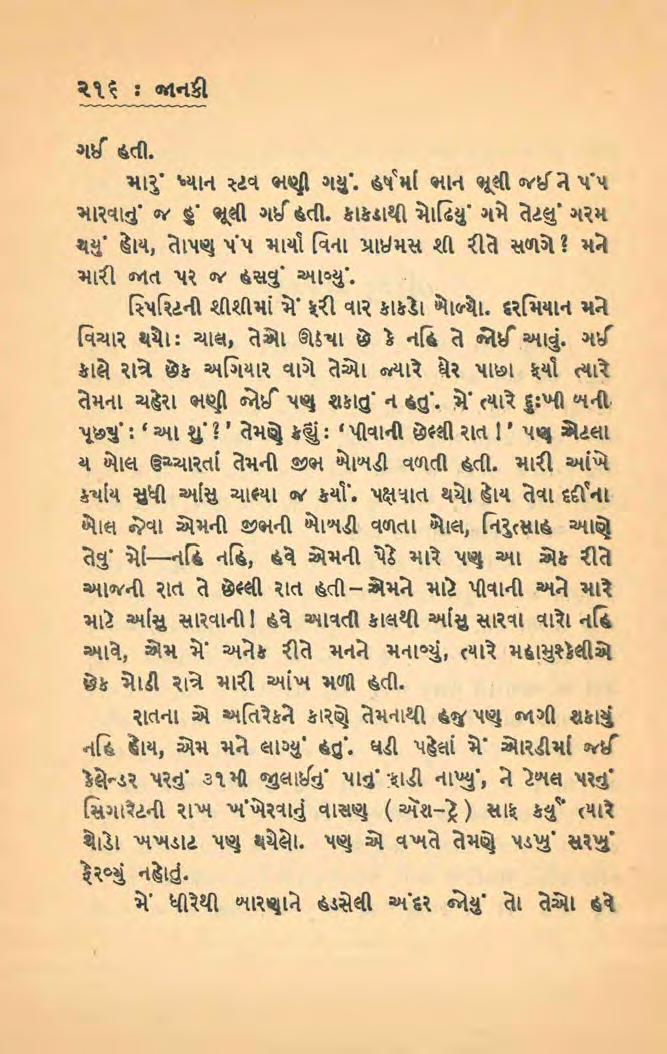 ૨૧૬ : જાનકી
ગઈ હતી.
મારું ધ્યાન સ્ટવ ભણી ગયું. હર્ષમાં ભાન ભૂલી જઈ ને પંપ
મારવાનું જ હું ભૂલી ગઈ હતી. કાકડાથી મોઢિયું ગમે તેટલું ગરમ
થયું હોય, તોપણ પંપ માર્યા વિના પ્રાઈમસ શી રીતે સળગે? મને
મારી જાત પર જ હસવું આવ્યું.
સ્પિરિટની શીશીમાં મેં ફરી વાર કાકડો બોળ્યો. દરમિયાન મને
વિચાર થયો: ચાલ, તેઓ ઊઠ્યા છે કે નહિ તે જોઈ આવું. ગઈ
કાલે રાત્રે છેક અગિયાર વાગે તેઓ જ્યારે ઘેર પાછા ફર્યા ત્યારે
તેમના ચહેરા ભણી જોઈ પણ શકાતું ન હતું. મેં ત્યારે દુઃખી બની
પૂછ્યું: ‘આ શું?’ તેમણે કહ્યું: ‘પીવાની છેલ્લી રાત!’ પણ એટલા
ય બોલ ઉચ્ચારતાં તેમની જીભ ખોખડી વળતી હતી. મારી આંખે
કર્યાય સુધી આંસુ ચાલ્યા જ કર્યાં. પક્ષઘાત થયો હોય તેવા દર્દીના
બોલ જેવા એમની જીભની ખોખડી વળતા બોલ, નિરુત્સાહ આણે
તેવું મોં—નહિ નહિ, હવે એમની પેઠે મારે પણ આ એક રીતે
આજની રાત તે છેલ્લી રાત હતી–એમને માટે પીવાની અને મારે
માટે આંસુ સારવાની! હવે આવતી કાલથી આંસુ સારવા વારો નહિ
આવે, એમ મેં અનેક રીતે મનને મનાવ્યું, ત્યારે મહામુશ્કેલીએ
છેક મોડી રાત્રે મારી આંખ મળી હતી.
રાતના એ અતિરેકને કારણે તેમનાથી હજુ પણ જાગી શકાયું
નહિ હોય, એમ મને લાગ્યું હતું. ઘડી પહેલાં મેં ઓરડીમાં જઈ
કેલેન્ડર પરનું ૩૧મી જુલાઈનું પાનું ફાડી નાખ્યું, ને ટેબલ પરનું
સિગારેટની રાખ ખંખેરવાનું વાસણ (એંશ-ટ્રે) સાફ કર્યું ત્યારે
થોડો ખખડાટ પણ થયેલો. પણ એ વખતે તેમણે પડખું સરખું
ફેરવ્યું નહોતું.
મેં ધીરેથી બારણાને હડસેલી અંદર જોયું તો તેઓ હવે